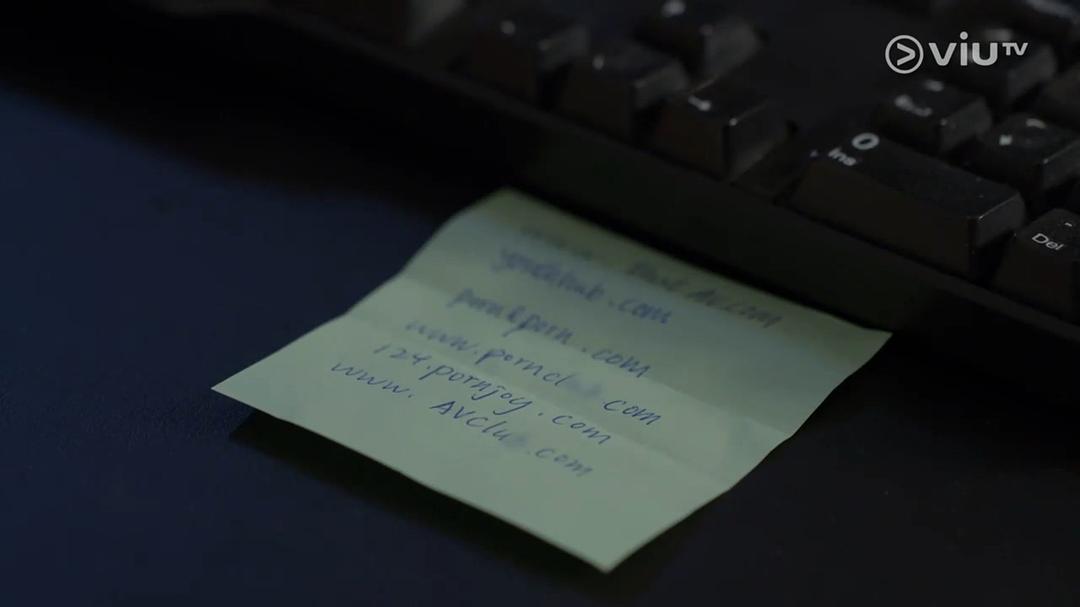 viuTV
0
Ins
Del
.com
porn&porn.com
www.porncl com
124.pornjoy.com
www. AVclu .com